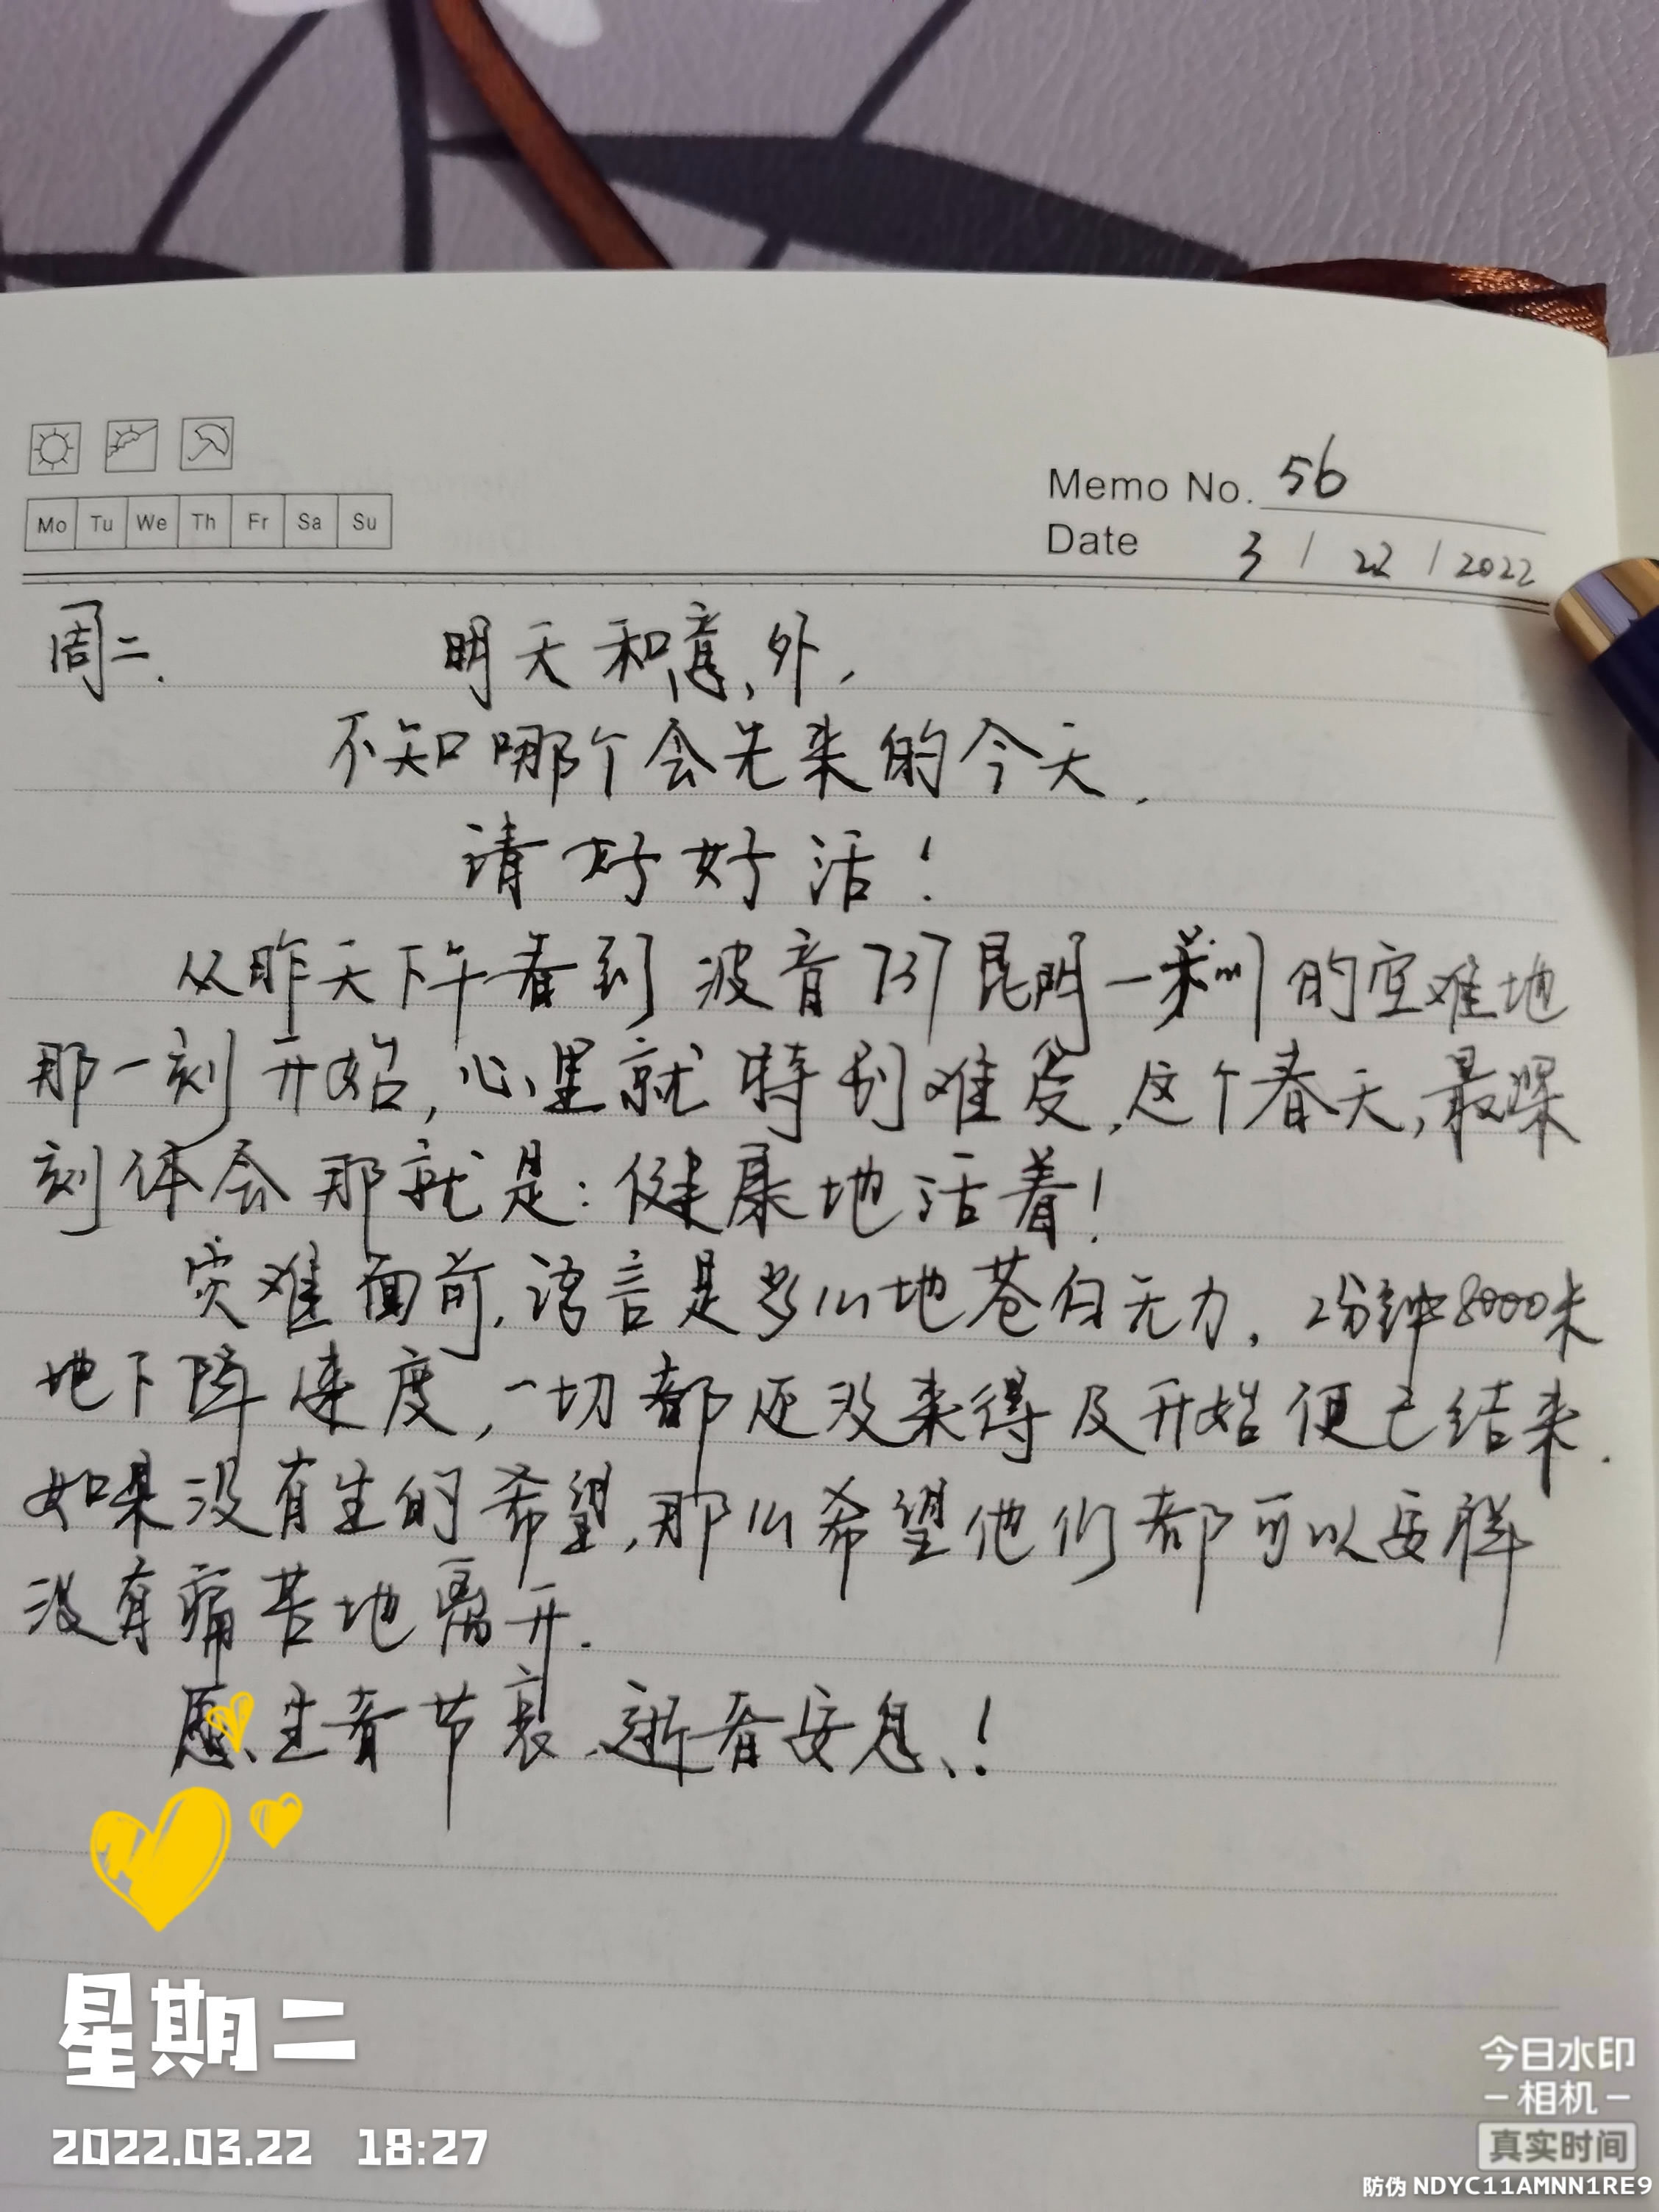 Mo Tu We Th Fr Sa Su
Memo No. 56
Date 3 / 22 / 2022
周二. 明天和意外,
不知哪个会先来的今天,
请好好活!
从昨天下午看到波音737昆明一梧州的空难地
那一刻开始,心里就特别难受,这个春天,最深
刻体会那就是:健康地活着!
灾难面前,语言是多么地苍白无力,2分钟8000米
地下降速度,一切都还没来得及开始便已结束.
如果没有生的希望,那么希望他们都可以安祥
没有痛苦地离开.
愿生者节哀,逝者安息!
星期二
2022.03.22 18:27
今日水印
-相机-
真实时间
防伪 NDYC11AMNN1RE9